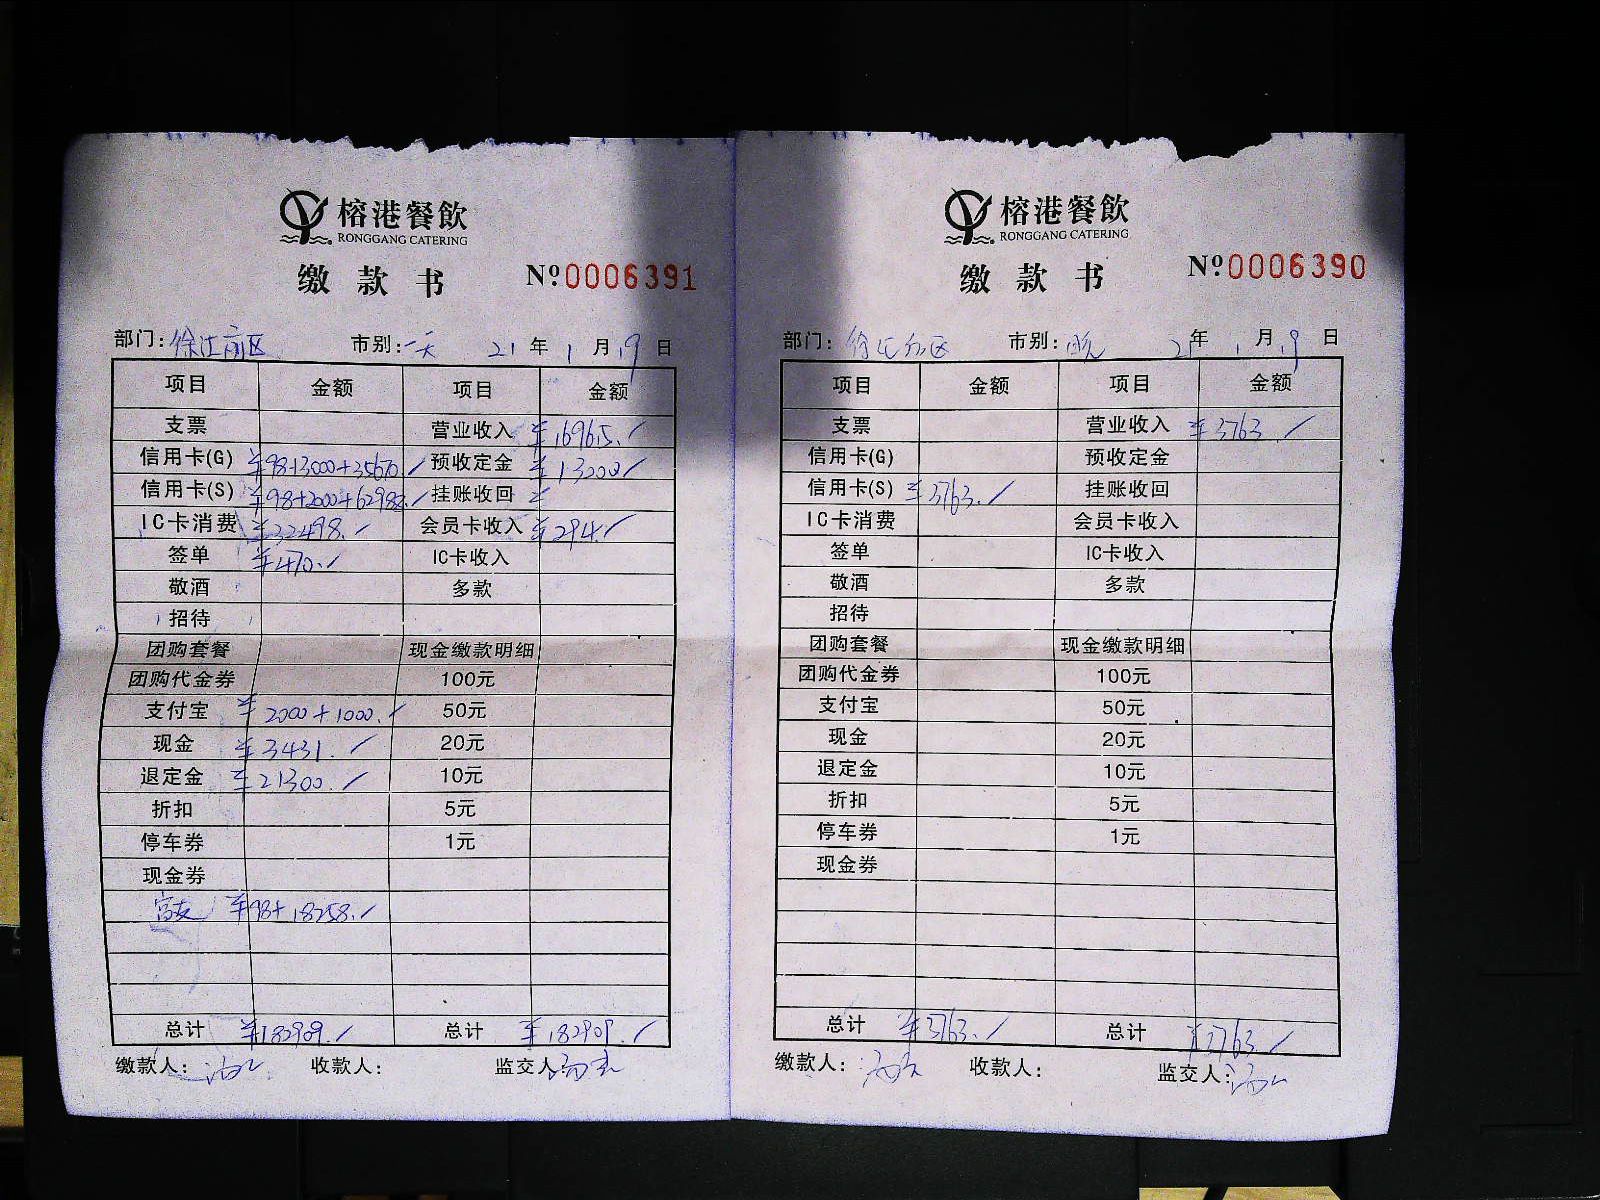 榕港餐飲
RONGGANG CATERING
缴款书 Nº0006391
部门: 徐汇前区 市别: 一天 21年1月19日
项目 金额 项目 金额
支票 营业收入 ¥169615.
信用卡(G) ¥98+13000+35670. 预收定金 ¥13000
信用卡(S) ¥98+2000+62988. 挂账收回
IC卡消费 ¥22498. 会员卡收入 ¥294.
签单 ¥470. IC卡收入
敬酒 多款
招待
团购套餐 现金缴款明细
团购代金券 100元
支付宝 ¥2000+1000. 50元
现金 ¥3431. 20元
退定金 ¥21300. 10元
折扣 5元
停车券 1元
现金券
¥98+18258.
总计 ¥182909. 总计 ¥182909.
缴款人: 收款人: 监交人:
榕港餐飲
RONGGANG CATERING
缴款书 Nº0006390
部门: 市别: 晚 21年1月19日
项目 金额 项目 金额
支票 营业收入 ¥3763.
信用卡(G) 预收定金
信用卡(S) ¥3763. 挂账收回
IC卡消费 会员卡收入
签单 IC卡收入
敬酒 多款
招待
团购套餐 现金缴款明细
团购代金券 100元
支付宝 50元
现金 20元
退定金 10元
折扣 5元
停车券 1元
现金券
总计 ¥3763. 总计 ¥3763.
缴款人: 收款人: 监交人: